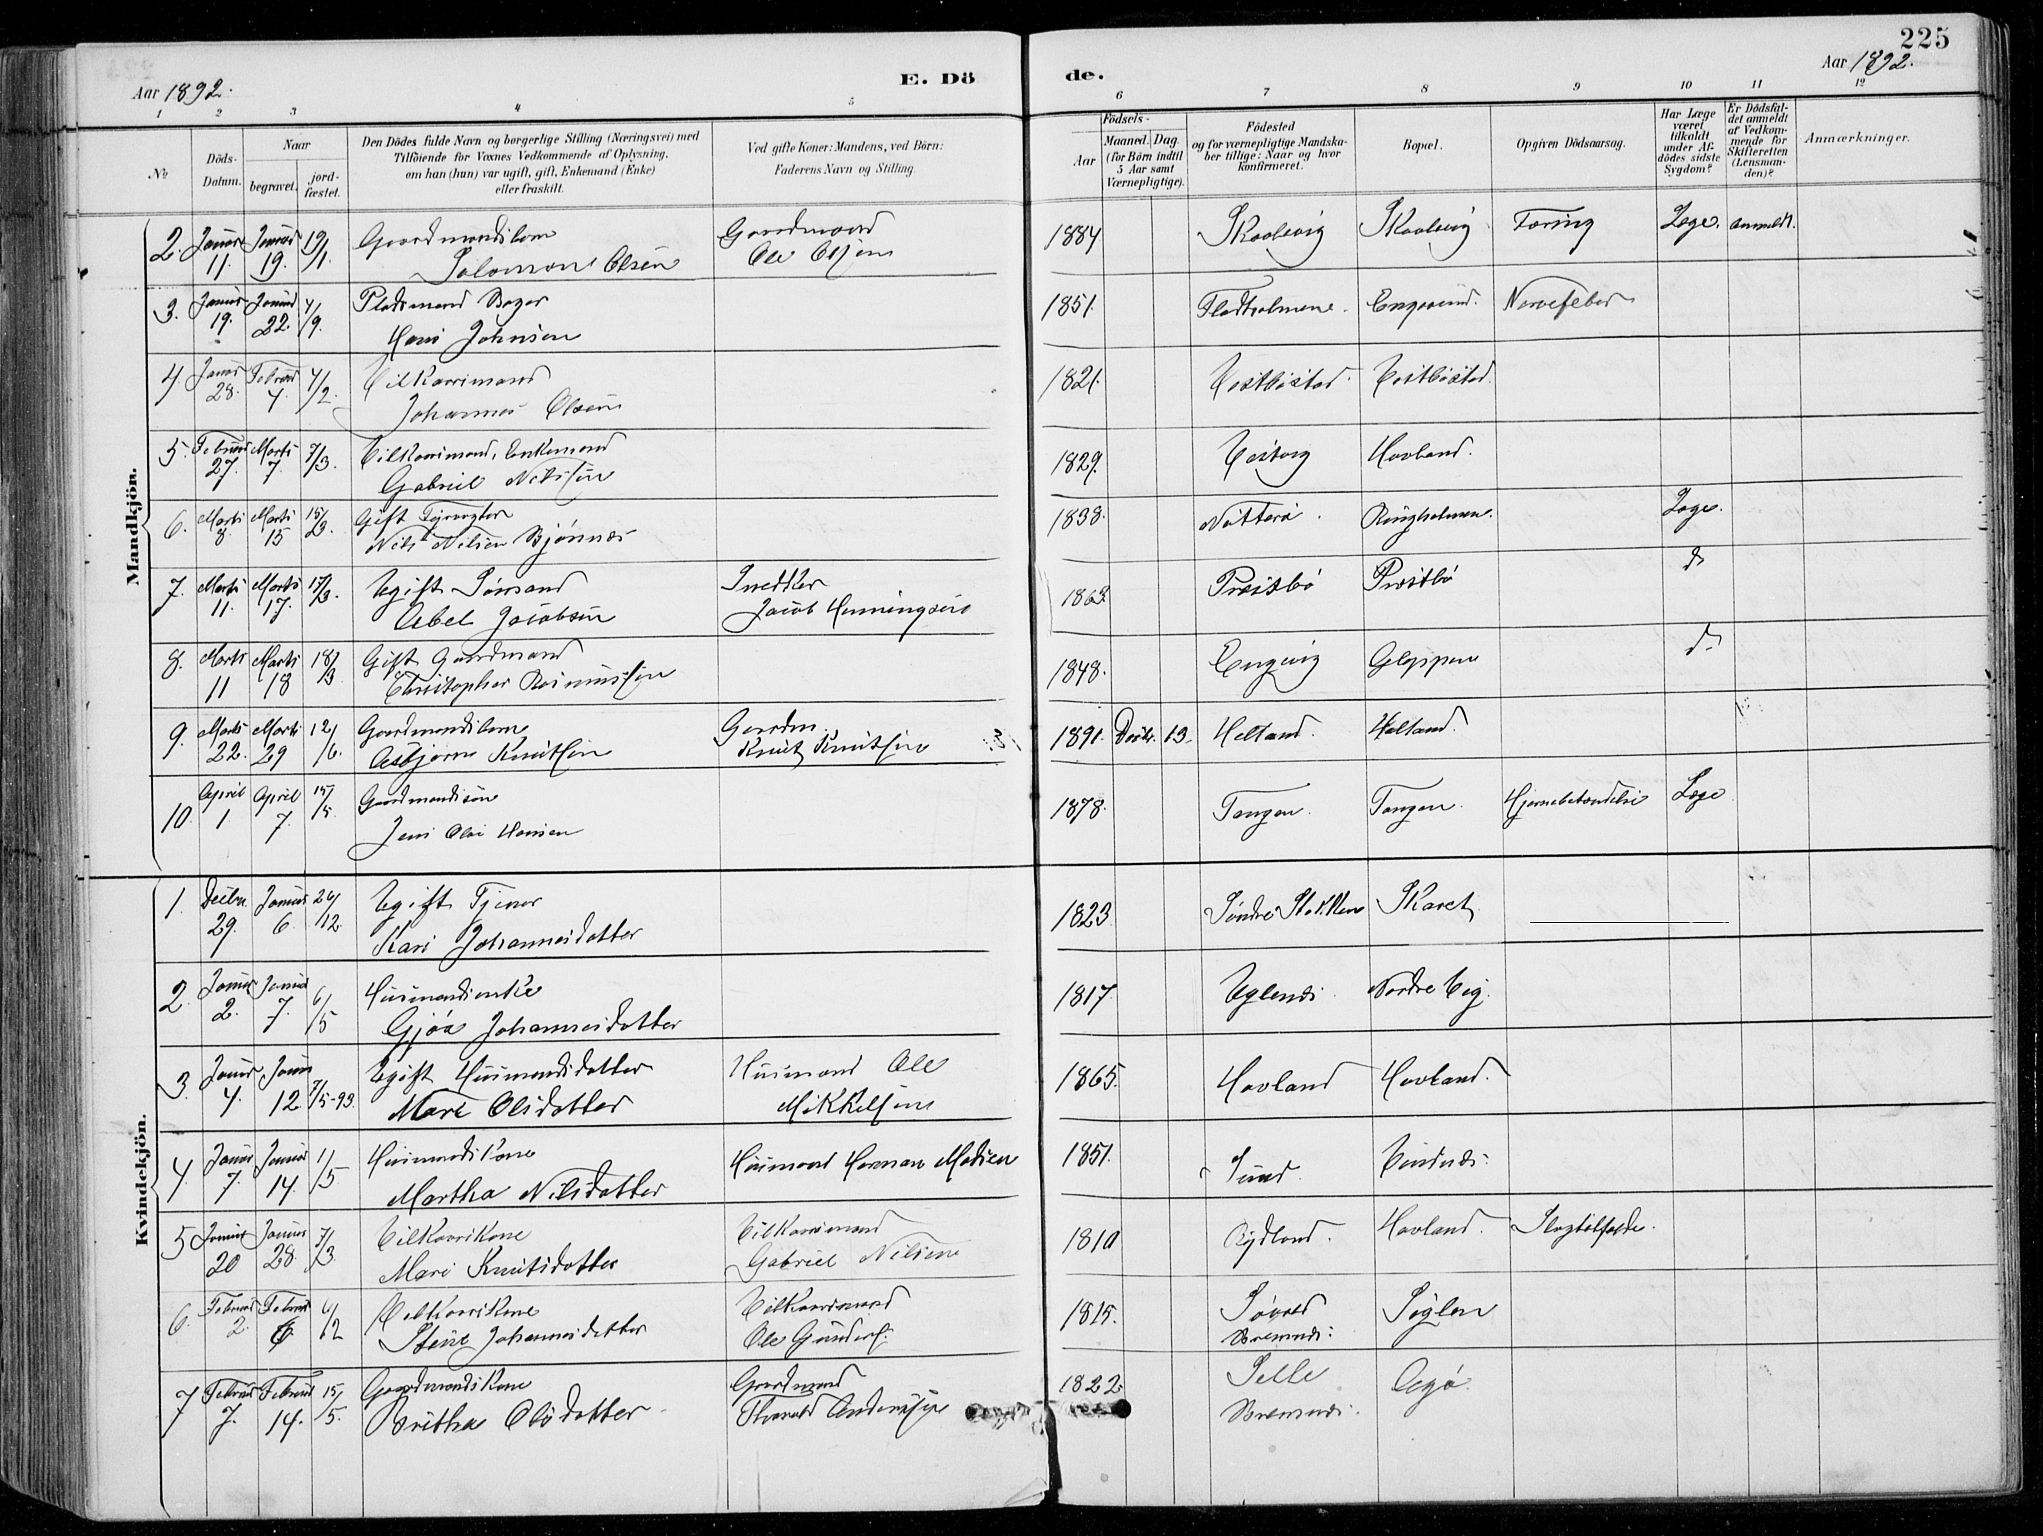 225
Aar 1892.
E. Dö
de.
Aar 1892.
1 2 3 4 5 6 7 8 9 10 11 12
No
Döds-Datum.
Naar
begravet.
jord-fæstet.
Den Dödes fulde Navn og borgerlige Stilling (Næringsvei) med
Tilföiende for Voxnes Vedkommende af Oplysning,
om han (hun) var ugift, gift, Enkemand (Enke)
eller fraskilt.
Ved gifte Koner: Mandens, ved Börn:
Faderens Navn og Stilling.
Födsels-
Aar
Maaned. Dag.
(for Börn indtil
5 Aar samt
Værnepligtige).
Födested
og for værnepligtige Mandska-
ber tillige: Naar og hvor
konfirmeret.
Bopæl.
Opgiven Dödsaarsag.
Har Læge
været
tilkaldt
under Af-
dödes sidste
Sygdom?
Er Dödsfal-
det anmeldt
af Vedkom-
mende for
Skifteretten
(Lensman-
den)?
Anmærkninger.
Mandkjön.
2. Januar 11. Januar 19. 19/1. Gaardmandsbarn Salomon Olsen Gaardmand Ole Olsen 1884 Skaalevig Skaalevig Tæring Læge. anmeldt.
3. Januar 19. Januar 22. 4/9. Pladsmand Bager Hans Johnsen 1851. Fladholmene. Engesund. Nervefeber
4. Januar 28. Februar 4. 7/2. Vilkaarsmand Johannes Olsen 1821. Vestbøstad. Vestbøstad.
5. Februar 27. Marts 7. 7/3. Vilkaarsmand, Enkemand Gabriel Nilssen 1829. Hovland.
6. Marts 8. Marts 15 15/3. Gift Fyrvogter Nils Nilsen Bjønnes 1838. Nøtterø. Ringholmen. Læge.
7. Marts 11. Marts 17. 17/3. Ugift Sømand Abel Jacobsen Snedker Jacob Henningsen 1863 Præstbø Præstbø do
8. Marts 11 Marts 18 18/3 Gift Gaardmand Christopher Rasmussen 1848. Engevig Gloppen do
9. Marts 22. Marts 29 12/6. Gaardmandsbarn Asbjørn Knutsen Gaardm. Knut Knutsen 1891. Decbr. 13. Helland. Helland.
10. April 1. April 7. 15/5. Gaardmandssøn Jens Olai Hansen 1878. Tangen. Tangen. Hjernebetændelse Læge
Kvindekjön.
1. Decbr. 29. Januar 6. 26/12. Ugift Tjener Kari Johannesdatter 1823 Søndre Stokken Skaret
2. Januar 2. Januar 7. 6/5 Husmandsenke Gjøa Johannesdatter 1817 Uglenes. Nordre Vig.
3. Januar 4. Januar 12. 7/5-93. Ugift Husmandsdatter Mari Olsdatter Husmand Ole Mikkelsen 1865. Hovland Hovland.
4. Januar 7. Januar 14. 1/5 Husmandskone Martha Nilsdatter Husmand Herman Madsen 1851. Sund. Vindnes.
5 Januar 20 Januar 28. 7/3 Vilkaarskone Mari Knutsdatter Vilkaarsmand Gabriel Nilsen 1810 Rydland. Hovland. Slagtilfælde.
6. Februar 2. Februar 6 6/12 Vilkaarskone Stine Johannesdatter Vilkaarsmand Ole Gunders. 1815. Bremnes. Siglen
7 Februar 7. Februar 14. 15/5. Gaardmandskone Britha Olsdatter Gaardmand Thorvald Andersen 1822 Selle Bremnes. Agø.